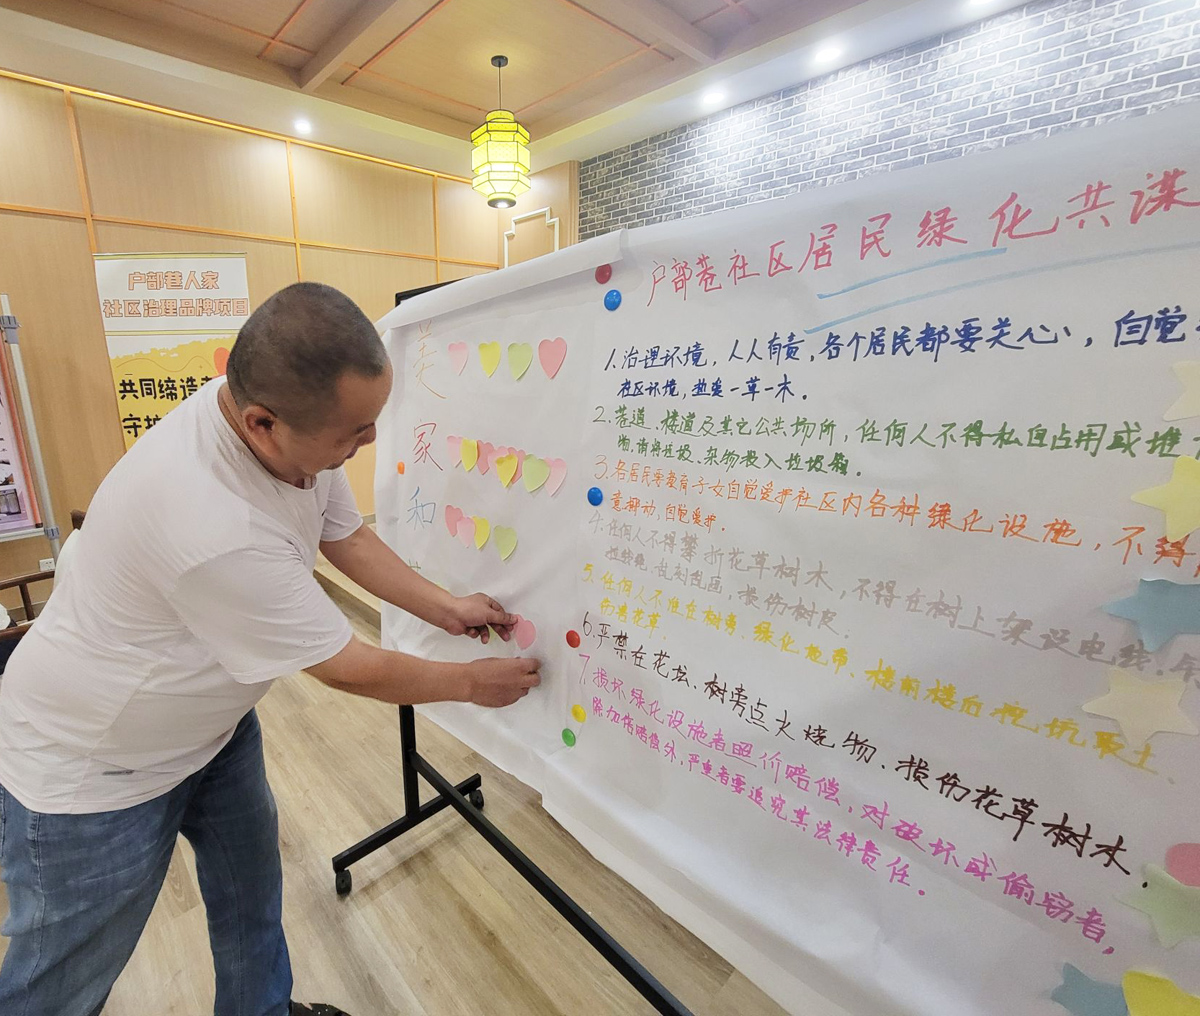 户部巷人家
社区治理品牌项目
共同缔造
守护
美
家
和
户部巷社区居民绿化共谋
1.治理环境，人人有责，各个居民都要关心，自觉
社区环境，热爱一草一木。
2.巷道、楼道及其它公共场所，任何人不得私自占用或堆
物，请将垃圾、杂物投入垃圾箱。
3.各居民要教育子女自觉爱护社区内各种绿化设施，不得
意挪动、自觉爱护。
4.任何人不得攀折花草树木，不得在树上架设电线、
乱刻乱画，损伤树皮。
5.任何人不准在树旁、绿化地带、楼前楼后挖坑取土、
伤害花草。
6.严禁在花坛、树旁点火烧物、损伤花草树木。
7.损坏绿化设施者照价赔偿，对破坏或偷窃者，
除加倍赔偿外，严重者要追究其法律责任。